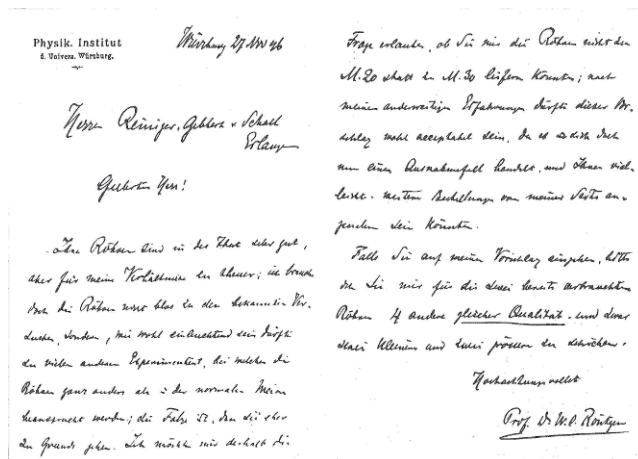 Physik. Institut
d. Univers. Würzburg.
Würzburg 27 Nov 96
Herren Reiniger, Gebbert & Schall
Erlangen
Geehrter Herr!
Ihre Röhren sind in der That sehr gut,
aber für meine Verhältnisse zu theuer; ich brauche
doch die Röhren nicht blos zu den bekannten Ver-
suchen, sondern, wie wohl einleuchtend sein dürfte
zu vielen anderen Experimenten, bei welchen die
Röhren ganz anders als in der normalen Weise
beansprucht werden; die Folge ist, dass sie eher
zu Grunde gehen. Ich möchte mir deshalb die
Frage erlauben, ob Sie mir die Röhren nicht den
M. 20 statt zu M. 30 liefern könnten; nach
meinen anderweitigen Erfahrungen dürfte dieser Vor-
schlag wohl acceptabel sein, da es sich doch
um einen Ausnahmefall handelt, und Ihnen viel-
leicht weitere Bestellungen von meiner Seite an-
genehm sein könnten.
Falls Sie auf meinen Vorschlag eingehen, bitte
ich Sie mir für die zwei bereits verbrauchten
Röhren 4 andere gleicher Qualität und zwar
zwei kleinere und zwei grössere zu schicken.
Hochachtungsvollst
Prof. Dr W. C. Röntgen